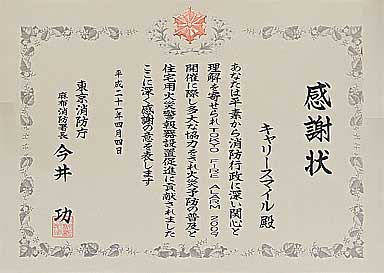 感謝状
キャリースマイル殿
あなたは平素から消防行政に深い関心と
理解を寄せられTOKYO FIRE ALARM 2009
開催に際し多大な協力をされ火災予防の普及と
住宅用火災警報器設置促進に貢献されました
ここに深く感謝の意を表します
平成二十一年四月四日
東京消防庁
麻布消防署長 今井 功